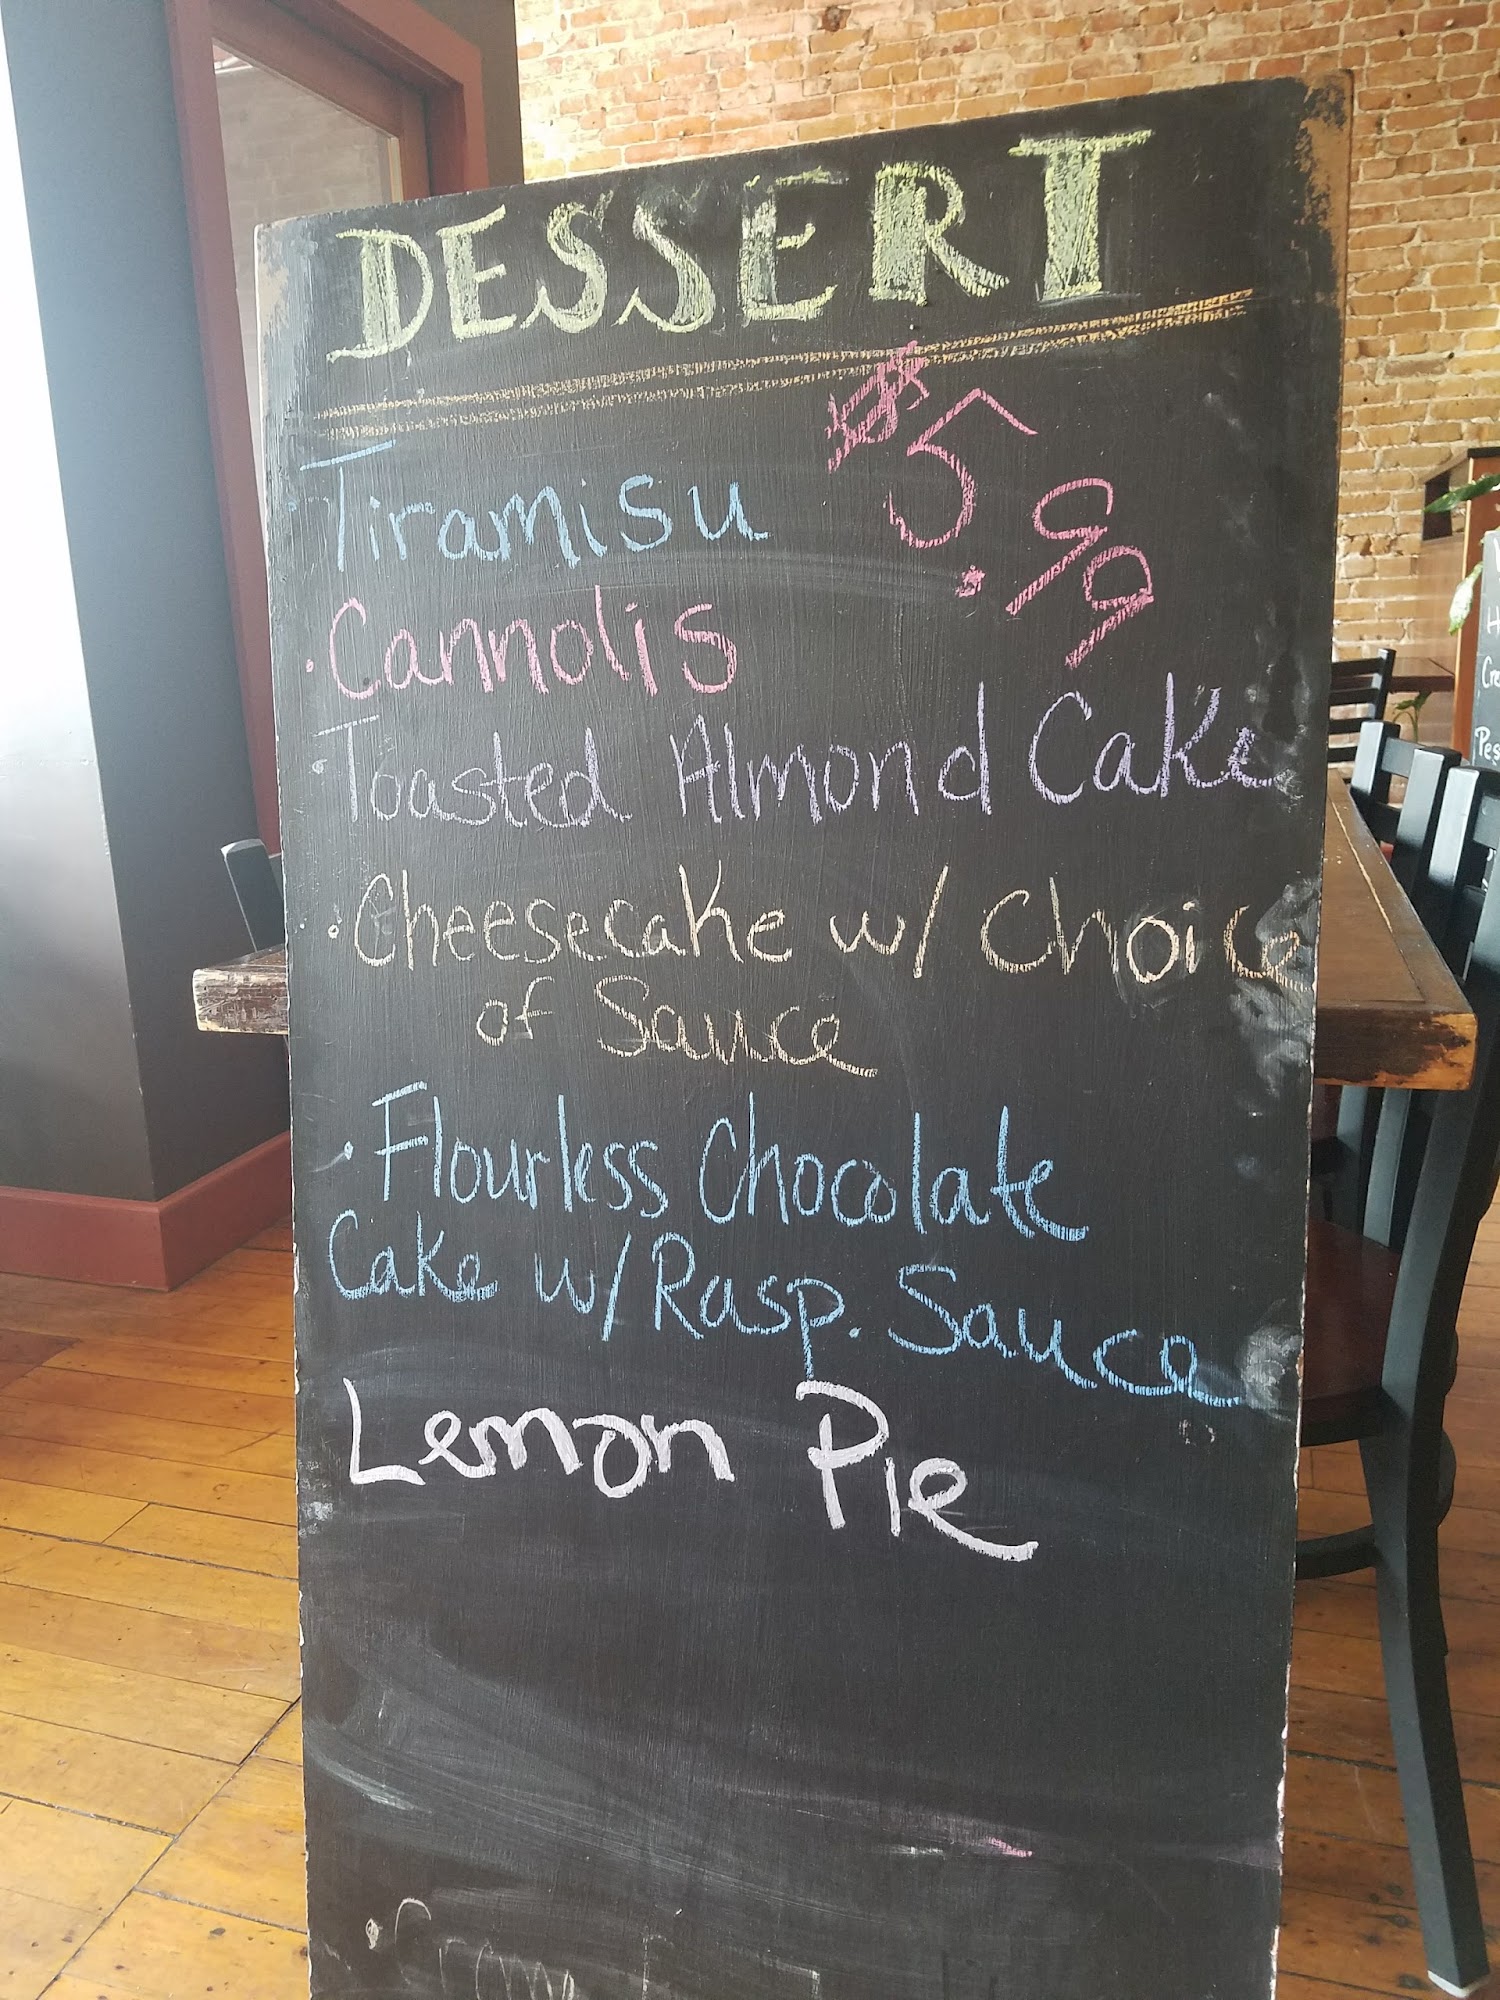 DESSERT
$5.99
Tiramisu
• Cannolis
• Toasted Almond Cake
• Cheesecake w/ Choice
of Sauce
• Flourless Chocolate
Cake w/ Rasp. Sauce
Lemon Pie